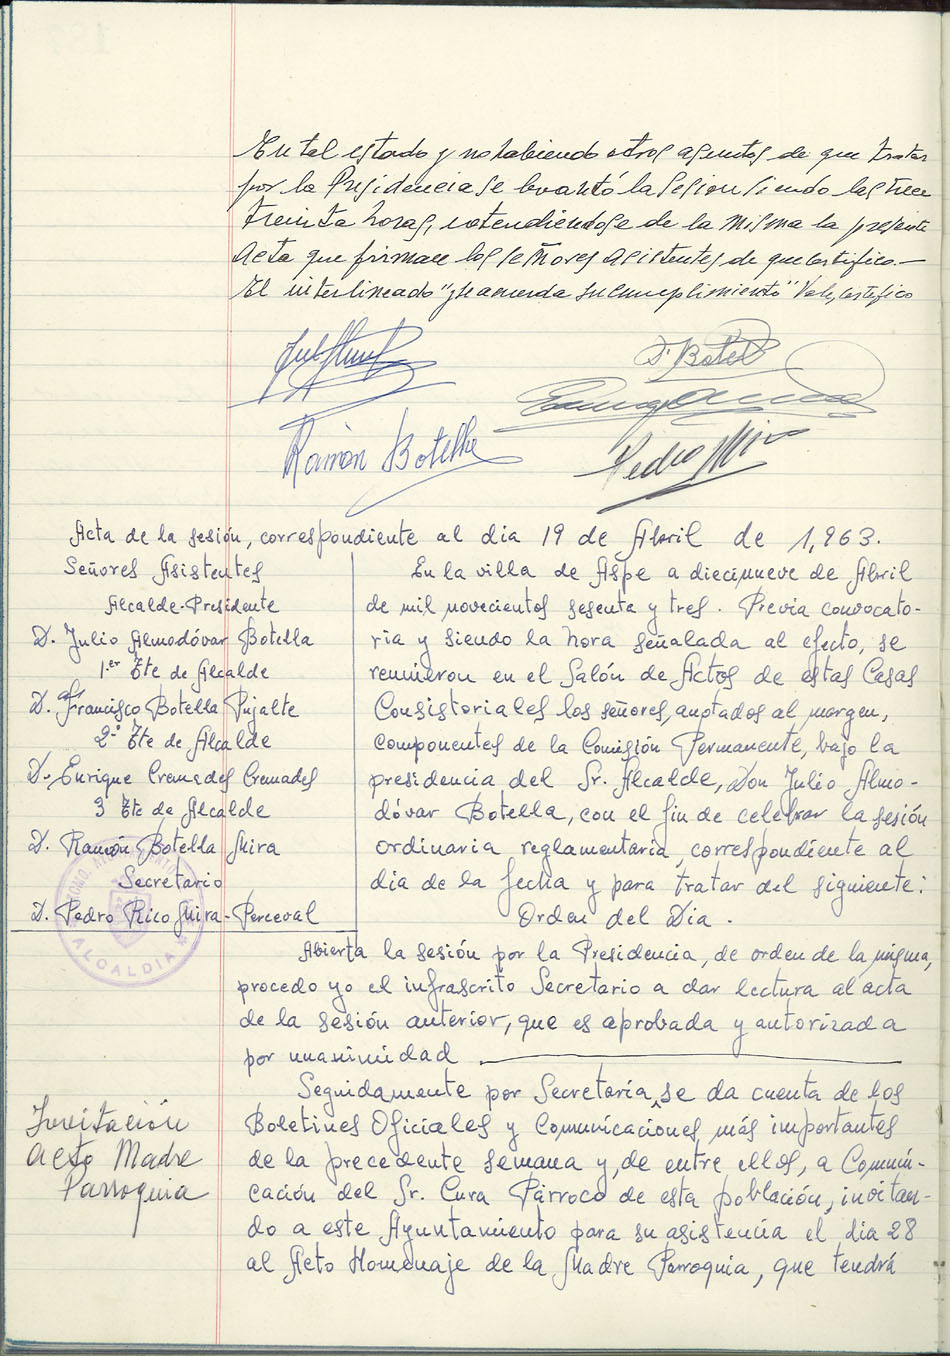 En tal estado y no habiendo otros asuntos de que tratar
por la Presidencia se levantó la sesion siendo las trece
treinta horas, extendiendose de la misma la presente
Acta que firman los señores asistentes de que certifico.—
El interlineado "y se acuerda su cumplimiento" Vale, certifico
D. Botella
Ramón Botella
Pedro Rico
Acta de la sesión, correspondiente al dia 19 de Abril de 1,963.
Señores Asistentes
Alcalde-Presidente
D. Julio Almodóvar Botella
1.er Tte de Alcalde
D. Francisco Botella Pujalte
2º Tte de Alcalde
D. Enrique Cremades Cremades
3 Tte de Alcalde
D. Ramón Botella Mira
Secretario
D. Pedro Rico Mira-Perceval
ALCALDIA
En la villa de Aspe a diecinueve de Abril
de mil novecientos sesenta y tres. Previa convocato-
ria y siendo la hora señalada al efecto, se
reunieron en el Salón de Actos de estas Casas
Consistoriales los señores, anotados al margen,
componentes de la Comisión Permanente, bajo la
presidencia del Sr. Alcalde, Don Julio Almo-
dóvar Botella, con el fin de celebrar la sesión
ordinaria reglamentaria, correspondiente al
dia de la fecha y para tratar del siguiente:
Orden del Dia.
Abierta la sesión por la Presidencia, de orden de la misma,
procedo yo el infrascrito Secretario a dar lectura al acta
de la sesión anterior, que es aprobada y autorizada
por unanimidad
Invitación
acto Madre
Parroquia
Seguidamente por Secretaría, se da cuenta de los
Boletines Oficiales y Comunicaciones, más importantes
de la precedente semana y, de entre ellos, a Comuni-
cación del Sr. Cura Párroco de esta población, invitan-
do a este Ayuntamiento para su asistencia el dia 28
al Acto Homenaje de la Madre Parroquia, que tendrá